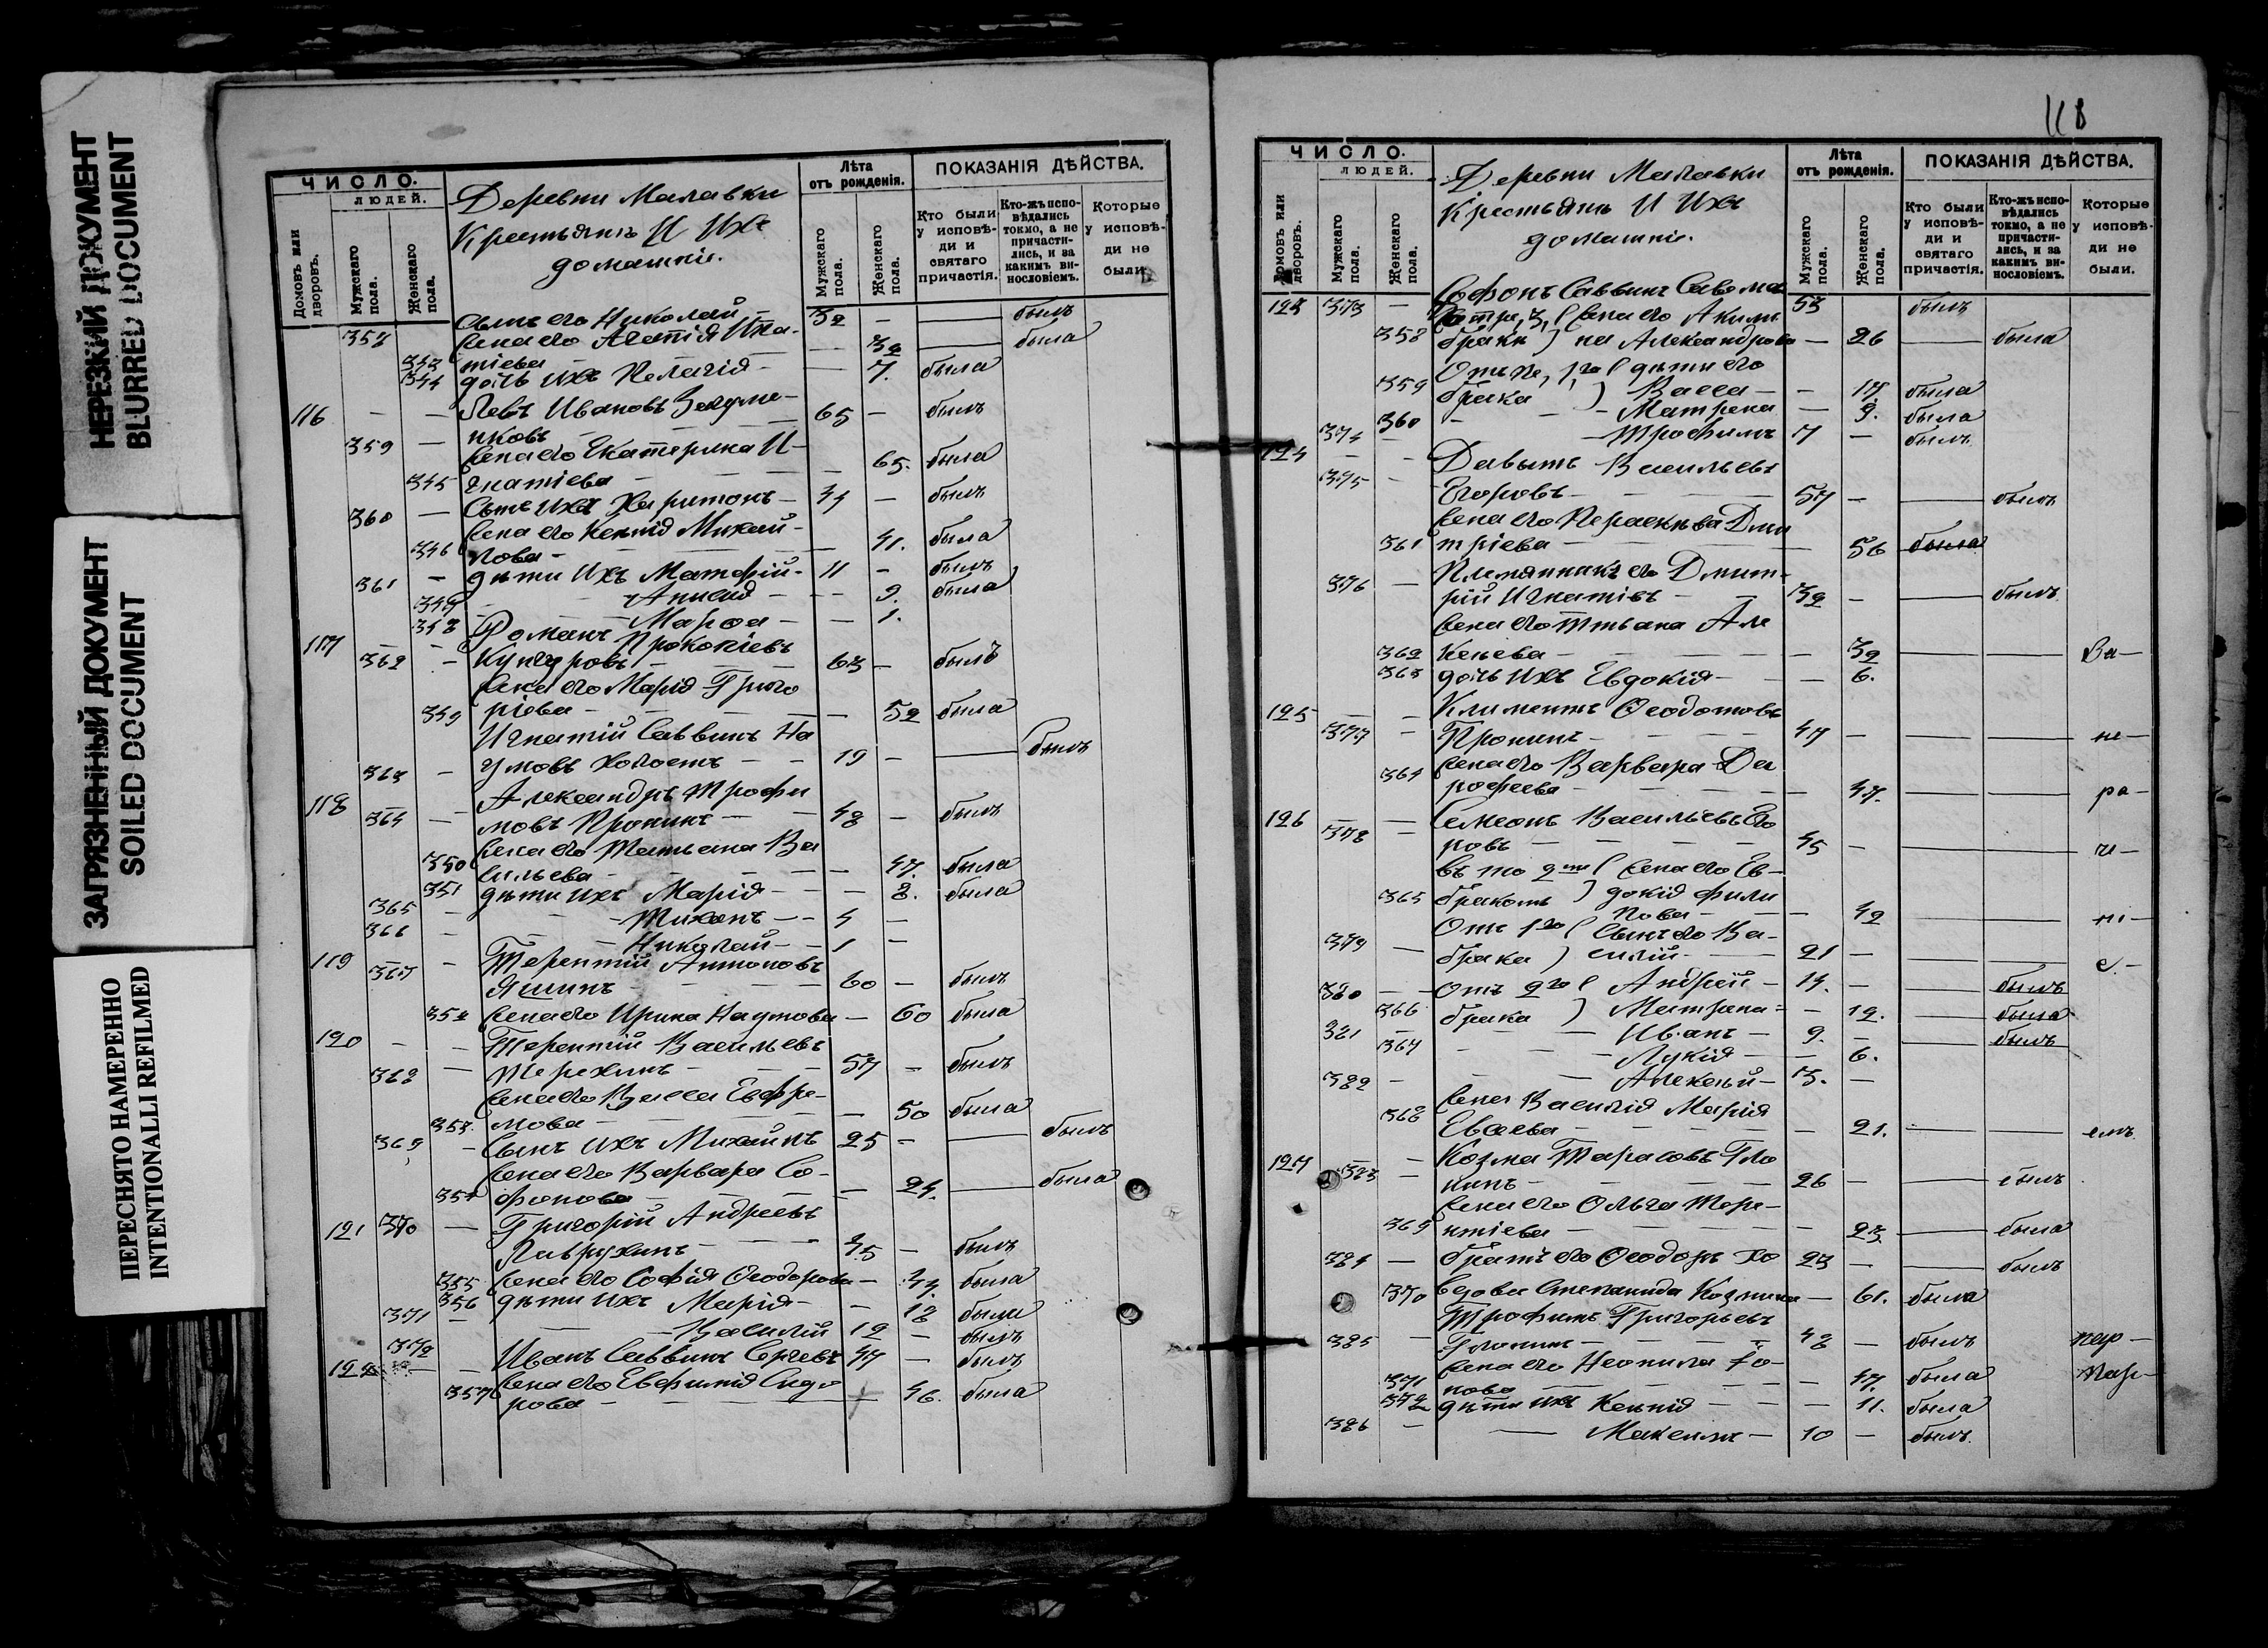 НЕРЕЗКИЙ ДОКУМЕНТ
BLURRED DOCUMENT
ЗАГРЯЗНЕННЫЙ ДОКУМЕНТ
SOILED DOCUMENT
ПЕРЕСНЯТО НАМЕРЕННО
INTENTIONALLI REFILMED
ЧИСЛО.
ЛЮДЕЙ.
Домовъ или дворовъ.
Мужскаго пола.
Женскаго пола.
Деревни Малавки
Крестьянъ И Ихъ
домашніи.
Лѣта
отъ рожденія.
Мужскаго пола.
Женскаго пола.
ПОКАЗАНІЯ ДѢЙСТВА.
Кто были у исповѣди и святаго причастія.
Кто-жъ исповѣдались токмо, а не причастились, и за какимъ винословіемъ.
Которые у исповѣди не были.
358 Сынъ его Николай - 32 - — былъ
Жена его Агапія Ипа-
343 тіева - 32 — была
344 дочь ихъ Пелагія - — 7. была
116 - - Левъ Ивановъ 65 - былъ
359 — нковъ
Жена его Екатерина И-
345 гнатіева — 65. была
360 — Сынъ ихъ Харитонъ - 44 - былъ
Жена его Ксенія Михай-
346 лова - — 41. была
361 - дѣти ихъ Матфій - 11 - былъ
347 - Анисія - - 9. была
348 - Марѳа - — 1.
117 - - Романъ Прокопіевъ
362 - 63 - былъ
Жена его Марія Григо
349 ріева - — 52 была
Игнатій Саввинъ На
363 - умовъ холостъ - 19 - — былъ
118 - - Александръ Трофи
364 — мовъ Пронинъ - 48 - былъ
Жена его Татьяна Ва
350 сильева - — 47. была
351 дѣти ихъ Марія - - 8. была
365 - Тихонъ - 4 -
366 - Николай - 1 -
119 - Терентій Антоновъ
367 Яшинъ - 60 - былъ
352 Жена его Ирина Наумова — 60 была
120 - - Терентій Васильевъ
368 — Терехинъ - 57 - былъ
Жена его Васса Ефре-
353. мова - — 50 была
369 - Сынъ ихъ Михаилъ 25 - — былъ
Жена его Варвара Со-
354 фонова - — 24. — была
121 370 — Григорій Андреевъ
Лаврухинъ - 45 - былъ
355 Жена его Софія Ѳеодорова — 44. была
356 дѣти ихъ Марія - - 18 была
371 - Василій 12 - былъ
122 372 - Иванъ Саввинъ Сергѣевъ 47 - былъ
357 Жена его Евфимія Сидо
рова - 46. была
118
ЧИСЛО.
ЛЮДЕЙ.
Домовъ или дворовъ.
Мужскаго пола.
Женскаго пола.
Деревни Малавки
Крестьянъ И Ихъ
домашніи.
Лѣта
отъ рожденія.
Мужскаго пола.
Женскаго пола.
ПОКАЗАНІЯ ДѢЙСТВА.
Кто были у исповѣди и святаго причастія.
Кто-жъ исповѣдались токмо, а не причастились, и за какимъ винословіемъ.
Которые у исповѣди не были.
123 373 — Софонъ Саввинъ 53 былъ
Жена его Акили
358 брака ) на Александрова — 26 — была
Отъ 1го ( дѣти его
359 брака ) Васса - - 17 была
360 - Матрена — 9. была
374 - Трофимъ 7 - былъ
124 - - Давыдъ Васильевъ
375 - Егоровъ - 57 - — былъ
Жена его Параскѣва Дми
361 тріева - 56 была
376 - Племянникъ его Дмит-
рій Игнатіевъ - 32 - — былъ
Жена его Татьяна Але
362 ксѣева - — 32 — — За —
363 дочь ихъ Евдокія - — 6.
125 - - Климентъ Ѳеодотовъ
377 - Пронинъ - 47 - — — не —
364 Жена его Варвара До
рофеева - — 47. — — ра —
126 - - Семеонъ Васильевъ Его
378 - ровъ - 45 - — — че —
въ 2мъ ( Жена его Ев-
365 бракомъ ) докія Фили
пова - — 42 — — ні —
379 — Отъ 1го ( Сынъ его Ва-
брака ) силій - 21 - — — е. —
380 — Отъ 2го ( Андрей - 14. - — былъ
366 брака ) Матрена - - 12. — была
381 - Иванъ - 9. - — былъ
367 - Лукія - — 6.
382 - Алексѣй - 3. -
Жена Василія Марія
368 Евсеева - — 21. — — емъ
127 383 - Козма Тарасовъ Гло
кинъ - 26 - — былъ
Жена его Ольга Тере-
369 нтіева - 23 — была
384 — Братъ его Ѳеодоръ хо 23 - — былъ
370 Вдова Степанида Козмина — 61. была
Трофимъ Григорьевъ
385 - 48 - былъ
Жена его Неонила
371 нова - 47. была
372 дѣти ихъ Ксенія - — 11. была
386 - Максимъ - 10 - былъ.